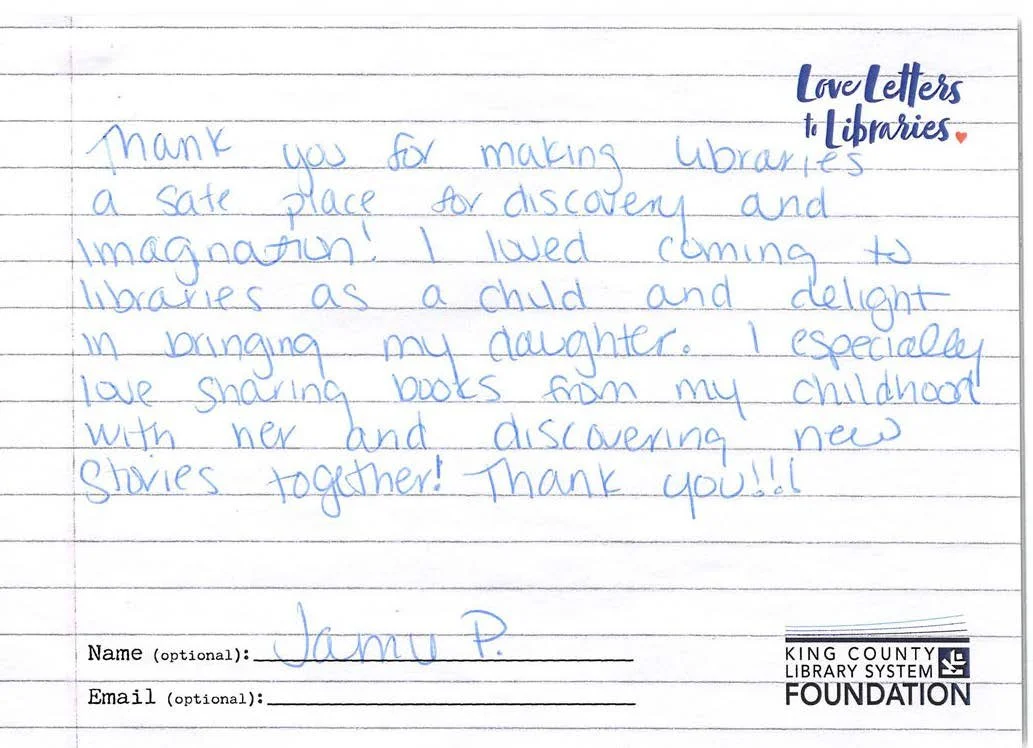 Love Letters
to Libraries
Thank you for making libraries
a safe place for discovery and
imagination! I loved coming to
libraries as a child and delight
in bringing my daughter. I especially
love sharing books from my childhood
with her and discovering new
stories together! Thank you!!!
Name (optional): Jamie P.
Email (optional):
KING COUNTY
LIBRARY SYSTEM
FOUNDATION